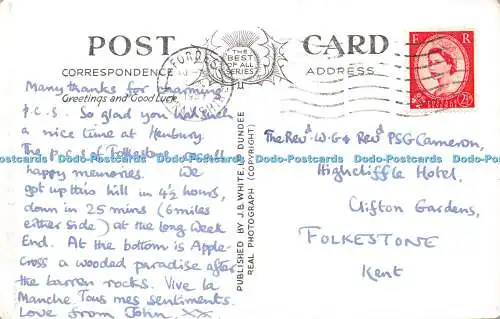 POST CARD
THE BEST OF ALL SERIES
CORRESPONDENCE
ADDRESS
Greetings and Good Luck
FORD
F R
POSTAGE REVENUE
2½D
Many thanks for charming
p.c.s. So glad you had such
a nice time at Henbury.
The p.c.s of Folkestone recall
happy memories. We
got up this hill in 4½ hours,
down in 25 mins (6 miles
either side) at the long Week
End. At the bottom is Apple-
Cross a wooded paradise after
the barren rocks. Vive la
Manche Tous mes sentiments.
Love from John. XX
PUBLISHED BY J.B. WHITE, LTD. DUNDEE
REAL PHOTOGRAPH (COPYRIGHT)
The Revd W.G & Revd P.S.G Cameron,
Highcliffe Hotel,
Clifton Gardens,
FOLKESTONE
Kent
Dodo-Postcards Dodo-Postcards Dodo-Postcards Dodo-Postcards Dodo-Postcards Dodo-Postcards